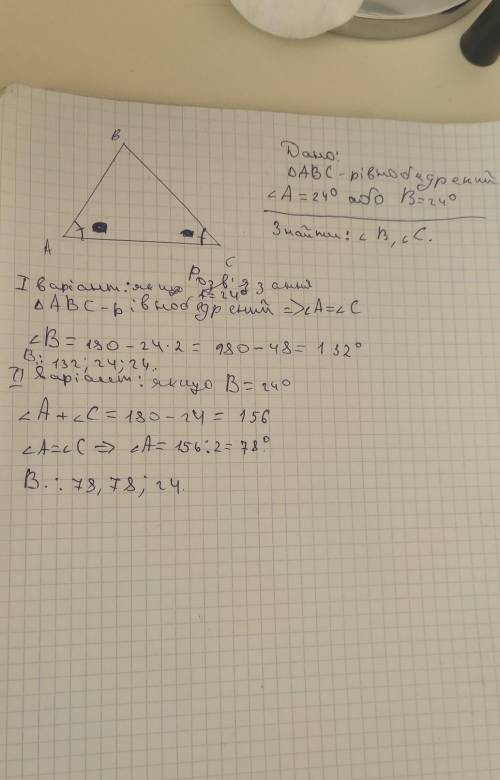 B
A
C
Дано:
△ABC - рівнобедрений
∠A = 24° або B = 24°
Знайти: ∠B, ∠C.
Розв'язання
I варіант: якщо A = 24°
△ABC - рівнобедрений => ∠A = ∠C
∠B = 180 - 24 · 2 = 180 - 48 = 132°
В: 132; 24; 24.
II Варіант: якщо B = 24°
∠A + ∠C = 180 - 24 = 156
∠A = ∠C => ∠A = 156 : 2 = 78°
В: 78, 78; 24.